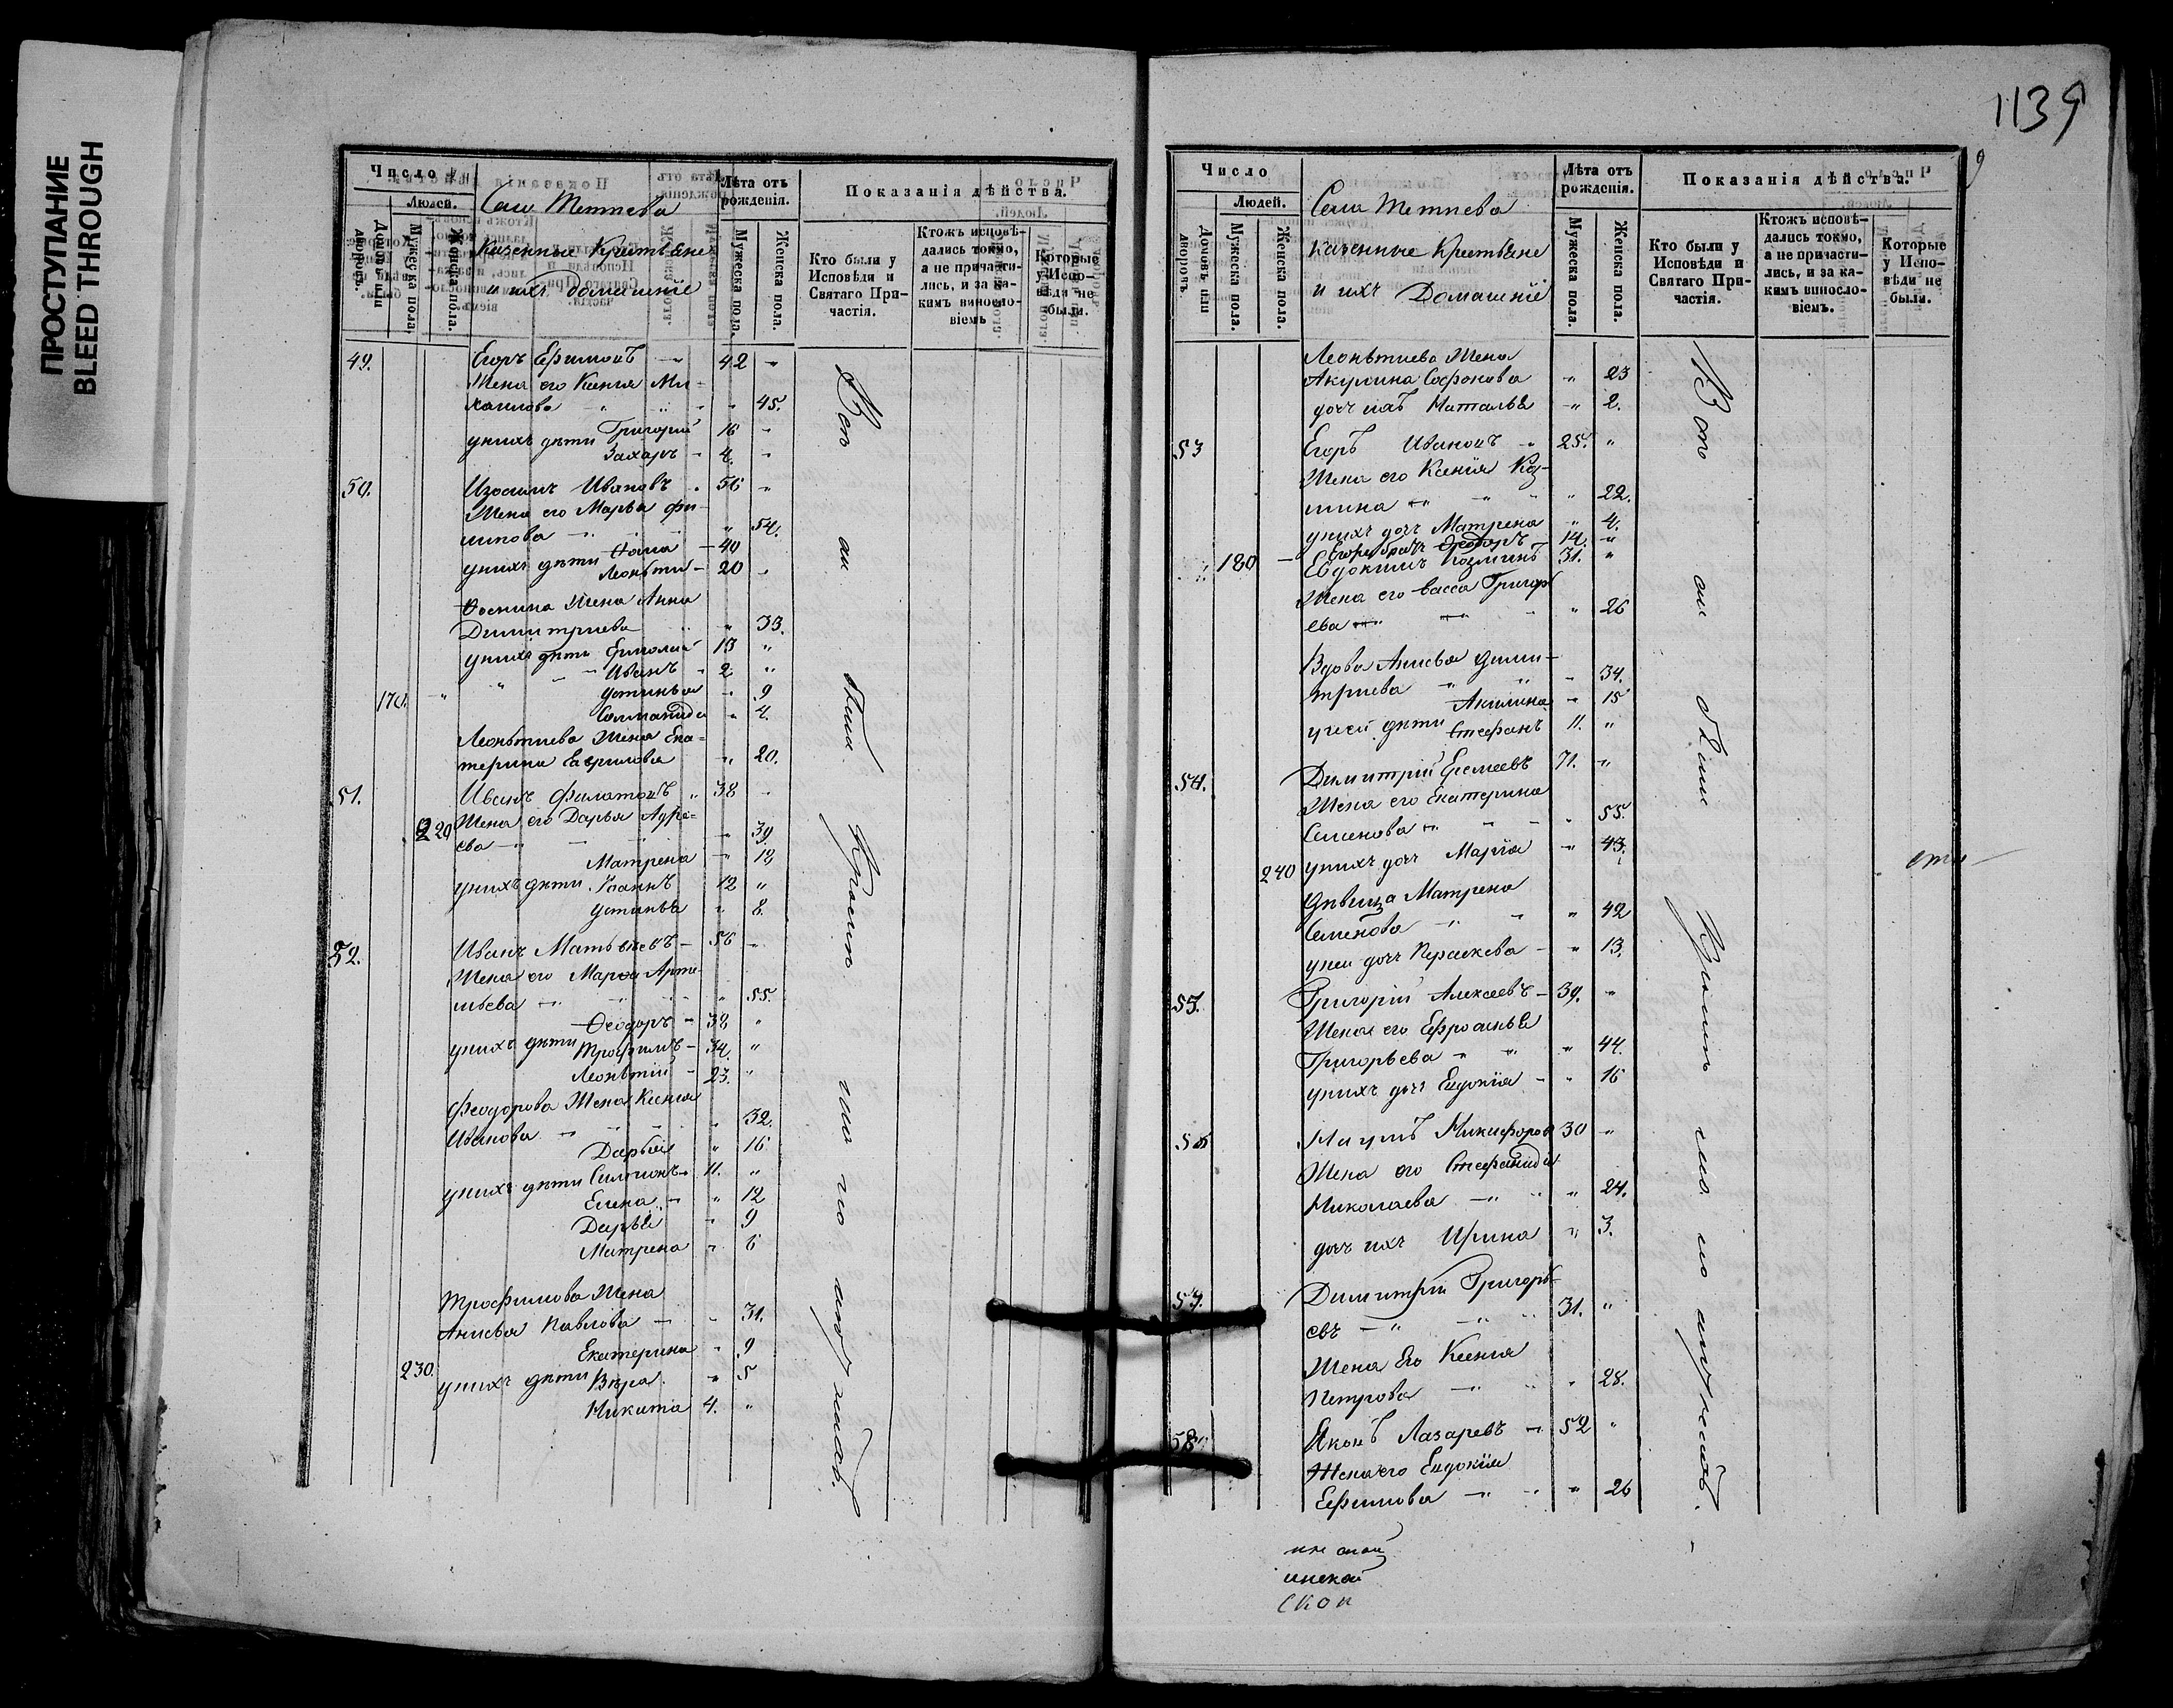 ПРОСТУПАНИЕ
BLEED THROUGH
1139
Число
Людей.
Домовъ или дворовъ.
Мужеска пола.
Женска пола.
Села Тетнева
казенные Крестьяне
и ихъ домашніе
Лѣта отъ рожденія.
Мужеска пола.
Женска пола.
Показанія дѣйства.
Кто были у Исповѣди и Святаго Причастія.
Ктожъ исповѣдались токмо, а не причастились, и за какимъ винословіемъ
Которые у Исповѣди не были.
49. Егоръ Ефимовъ 42
Жена его Ксенія Ми-
хаилова 45.
у нихъ дѣти Григорій 16
Захаръ 4.
50. Изосимъ Ивановъ 56
Жена его Марѳа Фи-
липова 54.
у нихъ дѣти Ѳома 40
Леонътій 20
Ѳомина Жена Анна
Димитриева 33.
у нихъ дѣти Ермолай 13
Иванъ 2
170. Устинья 9
Соломанида 4.
Леонътиева Жена Ека-
терина Гаврилова 20.
51. Иванъ Филатовъ 38
220 Жена его Дарья Адре-
ева 39
Матрена 12
у нихъ дѣти Іоаннъ 12
Устинья 8.
52. Иванъ Матвѣевъ 56
Жена его Марѳа Арте-
мьева 55.
Ѳеодоръ 38
у нихъ дѣти Трофимъ 34.
Леонътій 23.
Феодорова Жена Ксенія
Иванова 32.
Дарья 16
у нихъ дѣти Симионъ 11.
Елена 12
Дарья 9
Матрена 6
Трофимова Жена
Анисья Павлова 31.
Екатерина 9
230. у нихъ дѣти Вѣра 5
Никита 4.
Всѣ они были кромѣ
Число
Людей.
Домовъ или дворовъ.
Мужеска пола.
Женска пола.
Села Тетнева
казенные Крестьяне
и ихъ Домашніе
Лѣта отъ рожденія.
Мужеска пола.
Женска пола.
Показанія дѣйства.
Кто были у Исповѣди и Святаго Причастія.
Ктожъ исповѣдались токмо, а не причастились, и за какимъ винословіемъ.
Которые у Исповѣди не были.
Леонътиева Жена
Акулина Софонова 23
дочь ихъ Наталья 2.
53 Егоръ Ивановъ 25.
Жена его Ксенія Коз-
мина 22.
у нихъ дочь Матрена 4.
Егора братъ Ѳеодоръ 14.
180 Евдокимъ Козминъ 31.
Жена его Васса Григорь
ева 26
Вдова Анисья Дими-
триева 34.
Акилина 15
у ней дѣти Стефанъ 11.
54. Димитрій Еремеевъ 71.
Жена его Екатерина
Семенова 55.
240 у нихъ дочь Марія 43.
Дѣвица Матрена
Семенова 42
у ней дочь Параскева 13.
55. Григорій Алексеевъ 39.
Жена его Ефросинья
Григорьева 44.
у нихъ дочь Евдокія 16
56 Наумъ Никифоровъ 30
Жена его Стефанида
Николаева 24.
дочь ихъ Ирина 3.
57. Димитрій Григорь-
евъ 31.
Жена Его Ксенія
Петрова 28.
58 Яковъ Лазаревъ 52
Жена его Евдокія
Ефимова 26